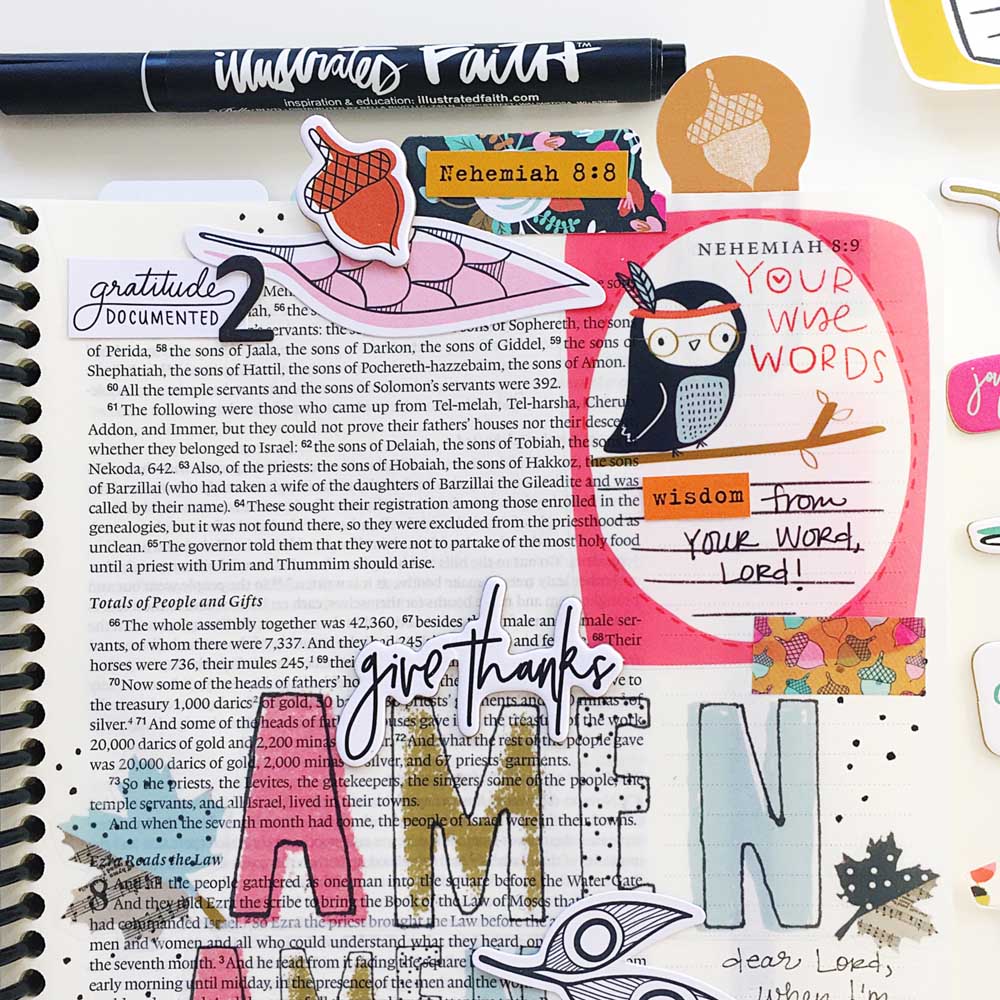 illustrated Faith™
inspiration & education: illustratedfaith.com
Nehemiah 8:8
NEHEMIAH 8:9
YOUR
wise
WORDS
wisdom from
YOUR WORD,
LORD!
gratitude
DOCUMENTED
2
56 the
servants: the sons of Sophereth, the sons
of Perida, 58 the sons of Jaala, the sons of Darkon, the sons of Giddel, 59 the sons of
Shephatiah, the sons of Hattil, the sons of Pochereth-hazzebaim, the sons of Amon.
60 All the temple servants and the sons of Solomon's servants were 392.
61 The following were those who came up from Tel-melah, Tel-harsha, Cherub,
Addon, and Immer, but they could not prove their fathers' houses nor their descent,
whether they belonged to Israel: 62 the sons of Delaiah, the sons of Tobiah, the sons of
Nekoda, 642. 63 Also, of the priests: the sons of Hobaiah, the sons of Hakkoz, the sons
of Barzillai (who had taken a wife of the daughters of Barzillai the Gileadite and was
called by their name). 64 These sought their registration among those enrolled in the
genealogies, but it was not found there, so they were excluded from the priesthood as
unclean. 65 The governor told them that they were not to partake of the most holy food
until a priest with Urim and Thummim should arise.
Totals of People and Gifts
66 The whole assembly together was 42,360, 67 besides male and male ser-
vants, of whom there were 7,337. And they had 245 and 68 Their
horses were 736, their mules 245,1 69 their
give thanks
70 Now some of the heads of fathers' to
the treasury 1,000 darics2 of gold, 50 priests' garments and minas of
silver.4 71 And some of the heads of gave into the treasury of the work
20,000 darics of gold and 2,200 minas 72 And what the rest of the people gave
was 20,000 darics of gold, 2,000 minas silver, and 67 priests' garments.
73 So the priests, the Levites, the gatekeepers, the singers, some of the people, the
temple servants, and all Israel, lived in their towns.
And when the seventh month had come, the people of Israel were in their towns.
AMEN
Ezra Reads the Law
8 And all the people gathered as one man into the square before the Water Gate
And they told Ezra the scribe to bring the Book of the Law of Moses that
had commanded Israel. 2 So Ezra the priest brought the Law before the
men and women and all who could understand what they heard, on
the seventh month. 3 And he read from it facing the square
early morning until midday, in the presence of the men and the
dear Lord,
when I'm